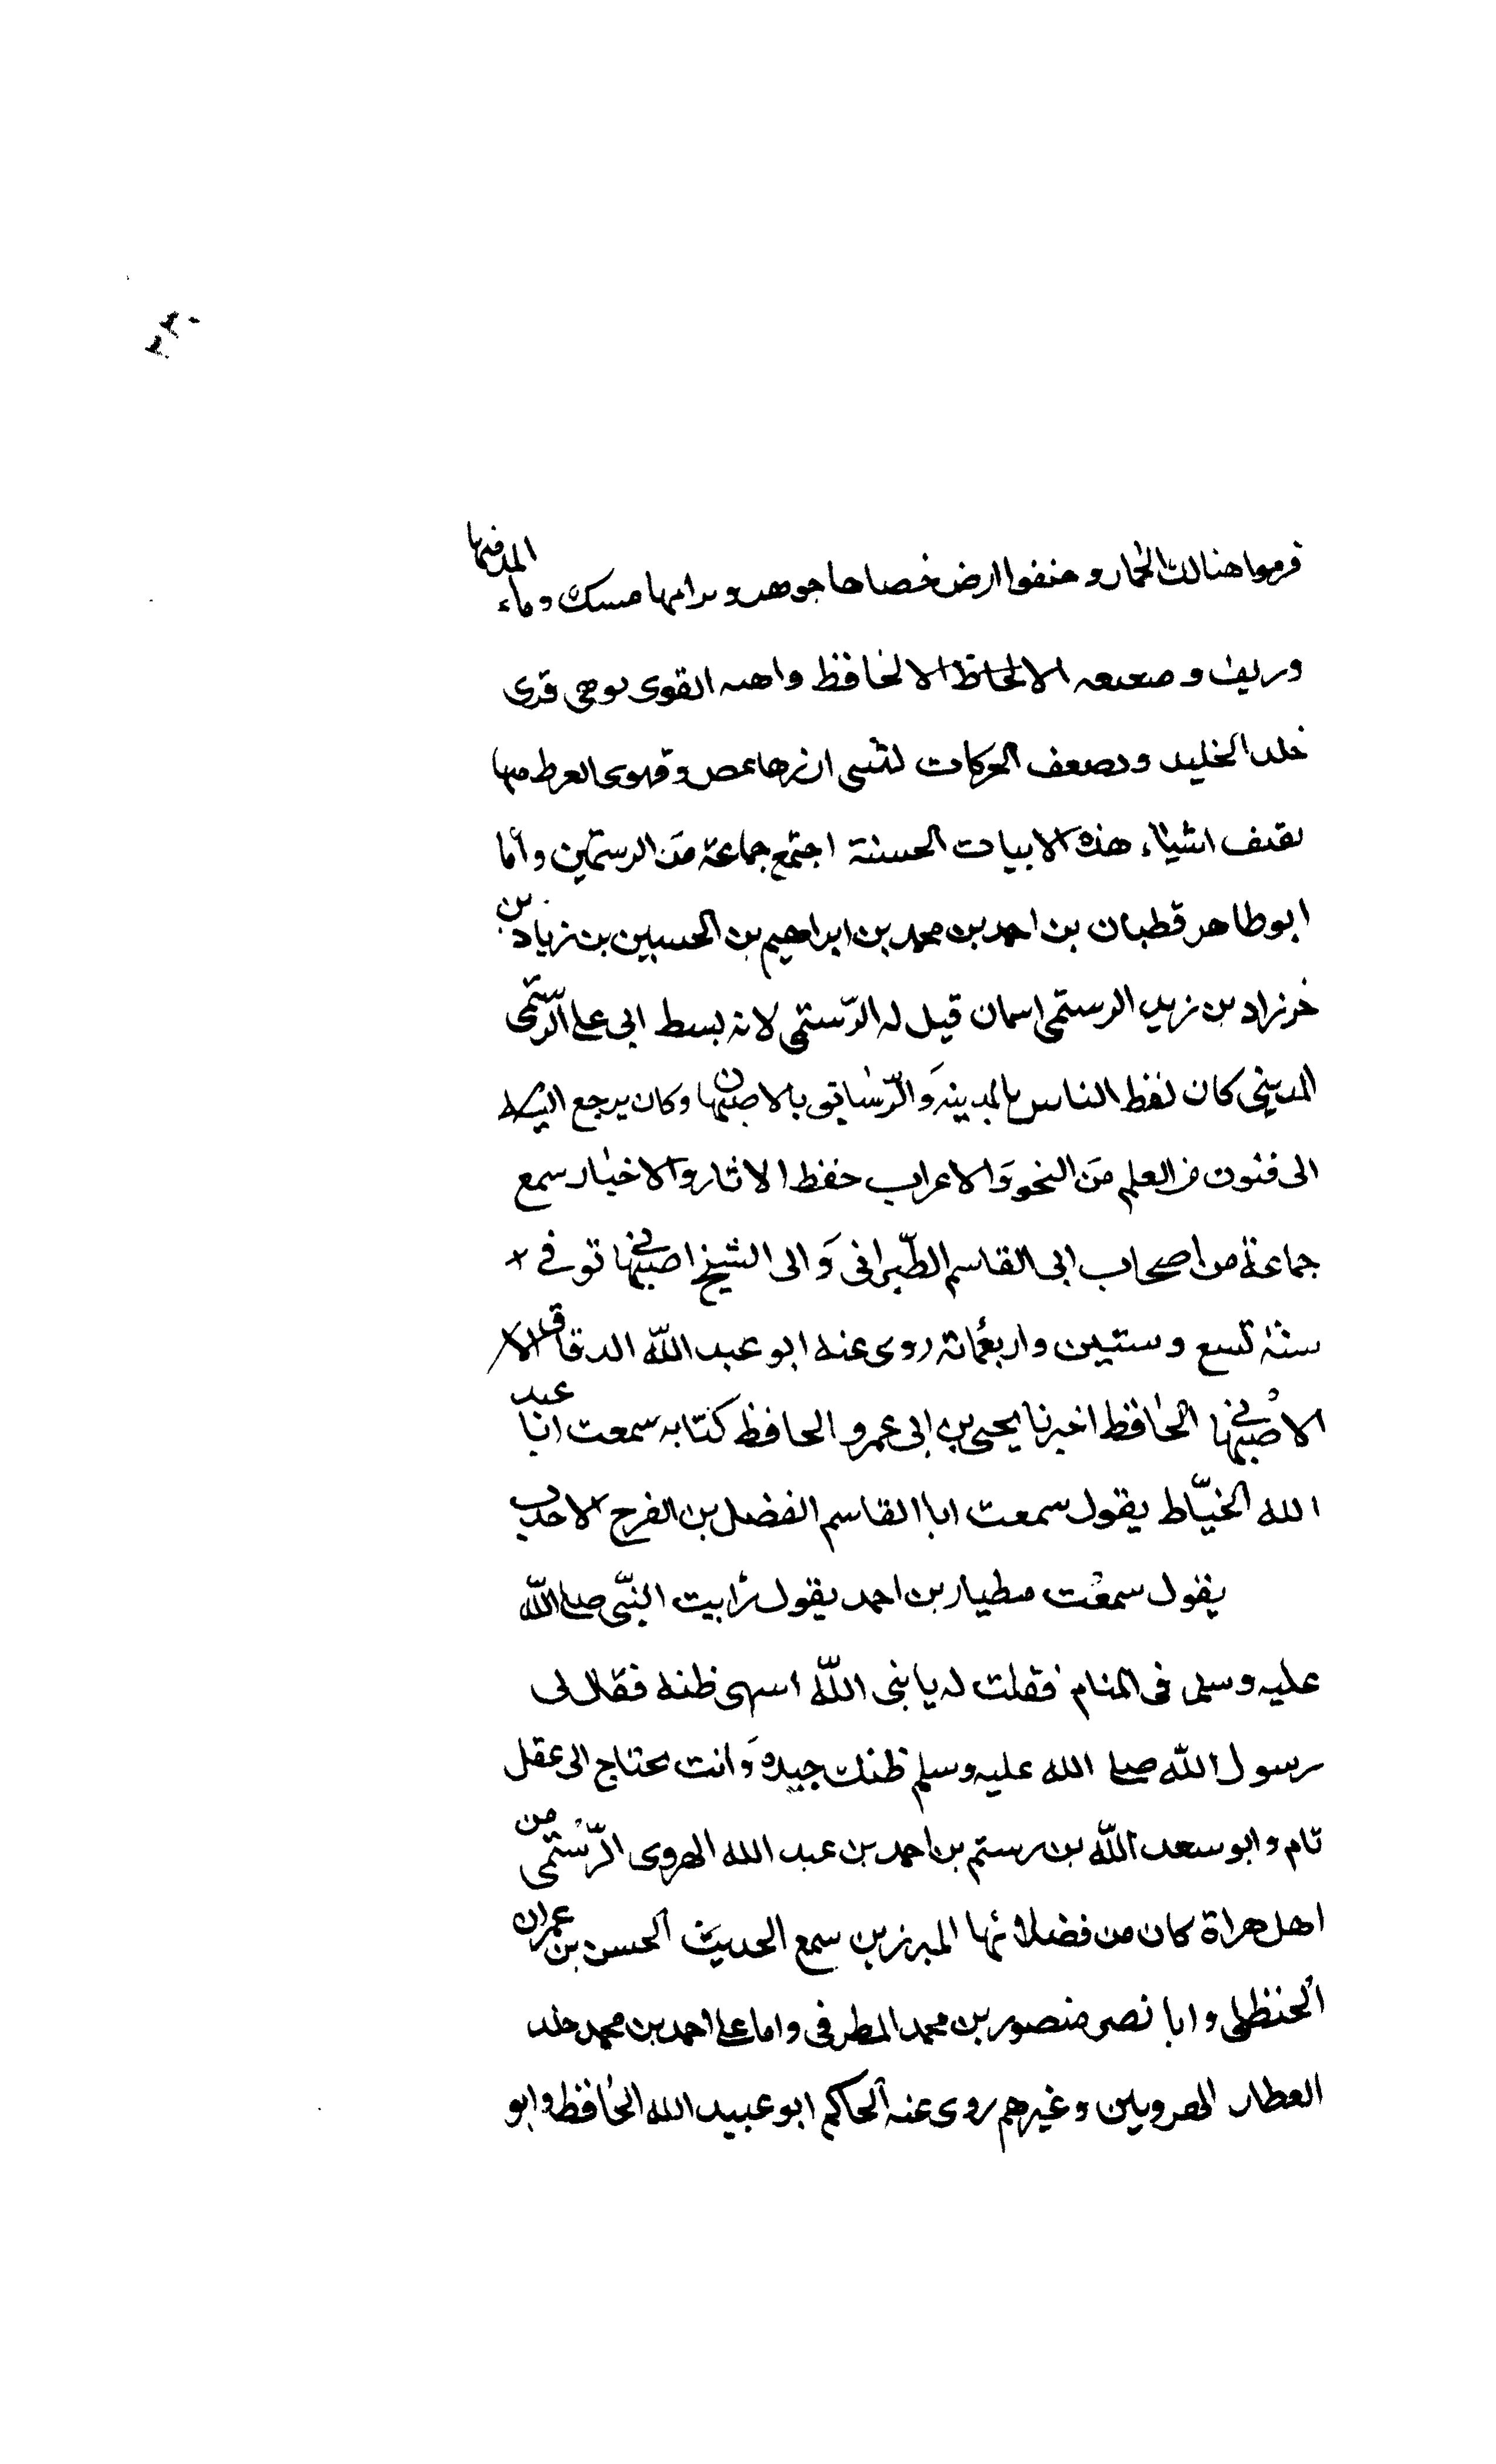 فرموا هنالك الجمار و خيفوا ارض خصاحا جوهر و ترابها مسك و ماء المد فيها
وريف و ضعيفه الالحاظ الا لحافظ واهيه القوى توهى قوى
خلد الخليد وتضعف الحركات تمص وقهوى القرط منها
اشياء هذه الابيات الحسنة اجتمع جماعة من الرستمين وأما
ابو طاهر قطبان بن احمد بن محمد بن ابراهيم بن الحسين بن زياد بن
خرزاد بن زيد الرستمى قيل له الرّستمى لانه بسط ابى على الرّستمى
المدينى كان الناس بالمدينة وَالرّساتيق باصبهان وكان يرجع
الى فنون من العلم منَ النحو وَالاعراب حفظ الاثار والاخبار سمع
جماعة من اصحاب ابى القاسم الطّبرانى وَالى الشيخ اصبهانى توفى
سنة تسع وستين واربعمائة روى عنه ابو عبد اللّه الدقاق الا
الاصبهانى الحافظ اخبرنا يحيى بن ابى عمرو الحافظ كتابه سمعت ابا عبد
الله الخيّاط يقول سمعت ابا القاسم الفضل بن الفرج الاحدب
يقول سمعت مطيار بن احمد يقول رأيت النبّى صلى اللّه
عليه وسلم فى المنام فقلت له يا بنى اللّه اسهى ظنه فقال لى
رسول اللّه صلى الله عليه وسلم ظنك جيده وَانت تحتاج الى عقل
تام وابو سعد اللّه بن رستم بن احمد بن عبد الله الهروى الرّستمى من
اهل هراة كان من فضلائها المبرزين سمع الحديث الحسن بن عمران
الحنظلى وابا نصر منصور بن محمد المطرفى واما على احمد بن محمد خلد
العطار الهرويين وغيرهم روى عنه الحاكم ابو عبيد الله الحافظ وابو